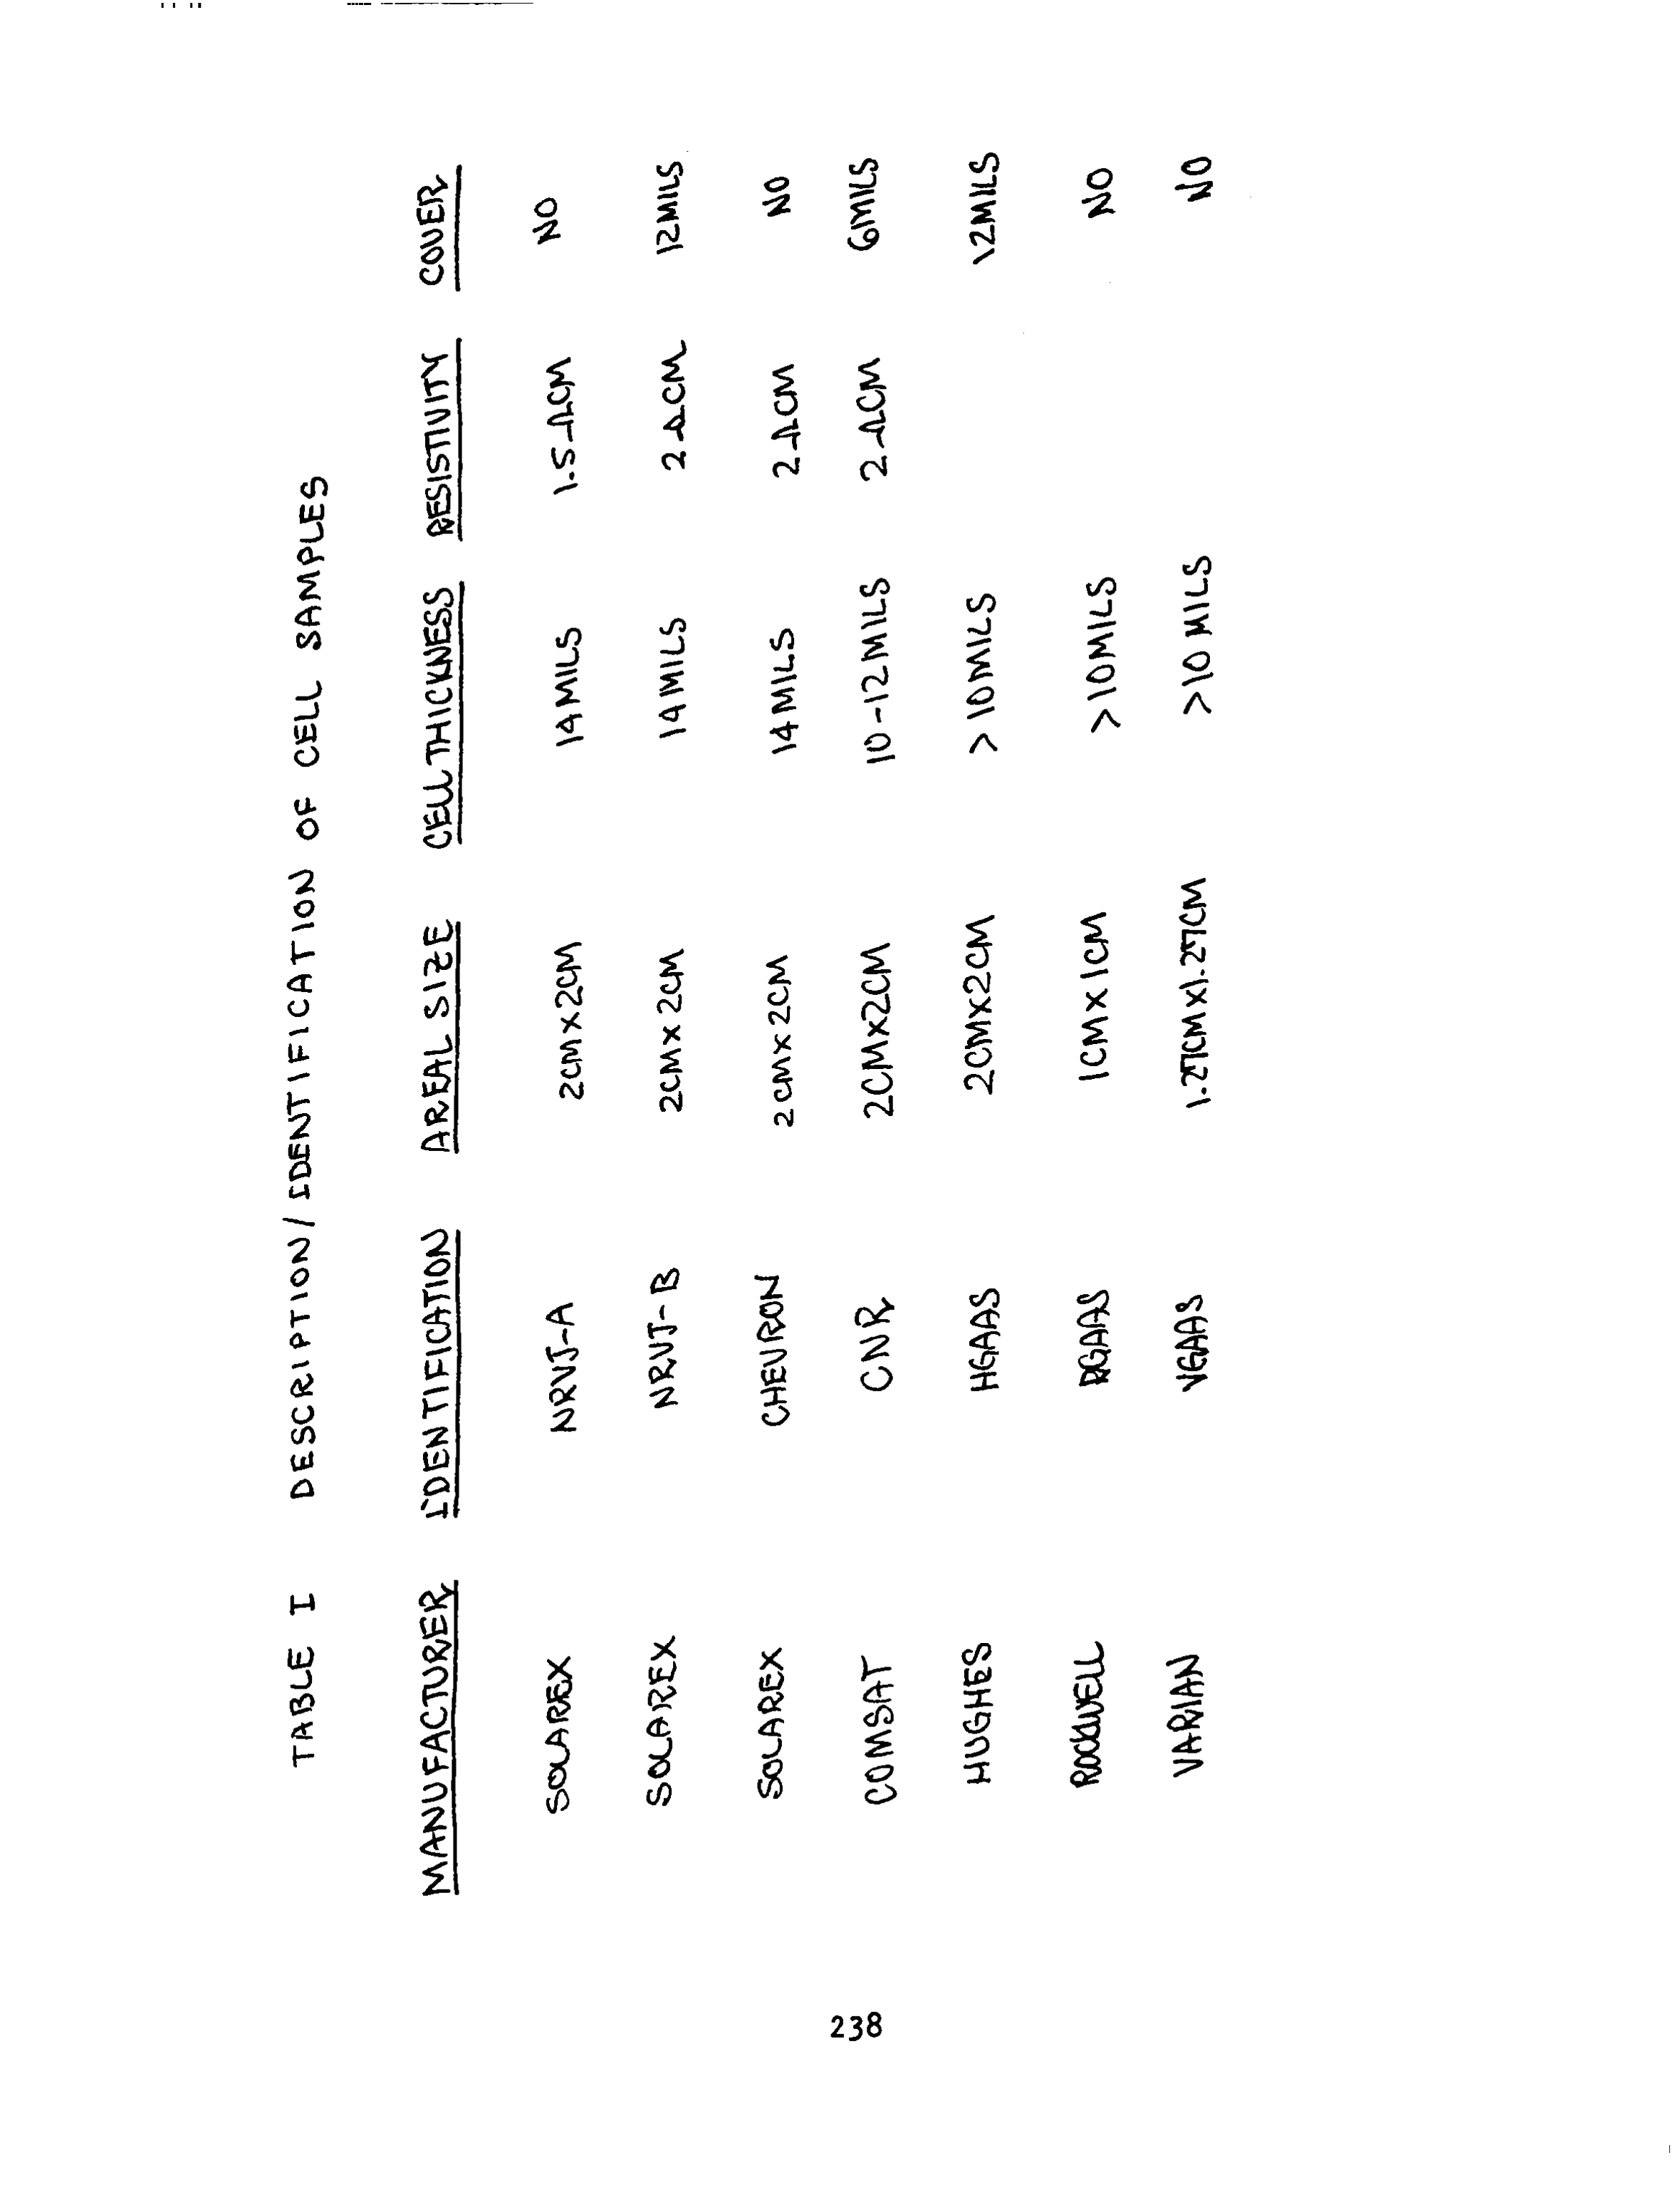 TABLE I DESCRIPTION/IDENTIFICATION OF CELL SAMPLES
MANUFACTURER IDENTIFICATION AREAL SIZE CELL THICKNESS RESISTIVITY COVER
SOLAREX NRVJ-A 2CM X 2CM 14 MILS 1.5 ΩCM NO
SOLAREX NRVJ-B 2CM X 2CM 14 MILS 2 ΩCM 12 MILS
SOLAREX CHEVRON 2CM X 2CM 14 MILS 2 ΩCM NO
COMSAT CNR 2CM X 2CM 10-12 MILS 2 ΩCM 6 MILS
HUGHES HGAAS 2CM X 2CM >10 MILS 12 MILS
ROCKWELL RGAAS 1CM X 1CM >10 MILS NO
VARIAN VGAAS 1.27CM X 1.27CM >10 MILS NO
238